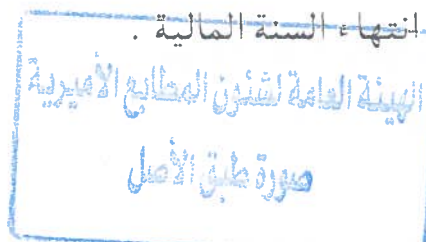 انتهاء السنة المالية .
الهيئة العامة لشئون المطابع الأميرية
صورة طبق الأصل